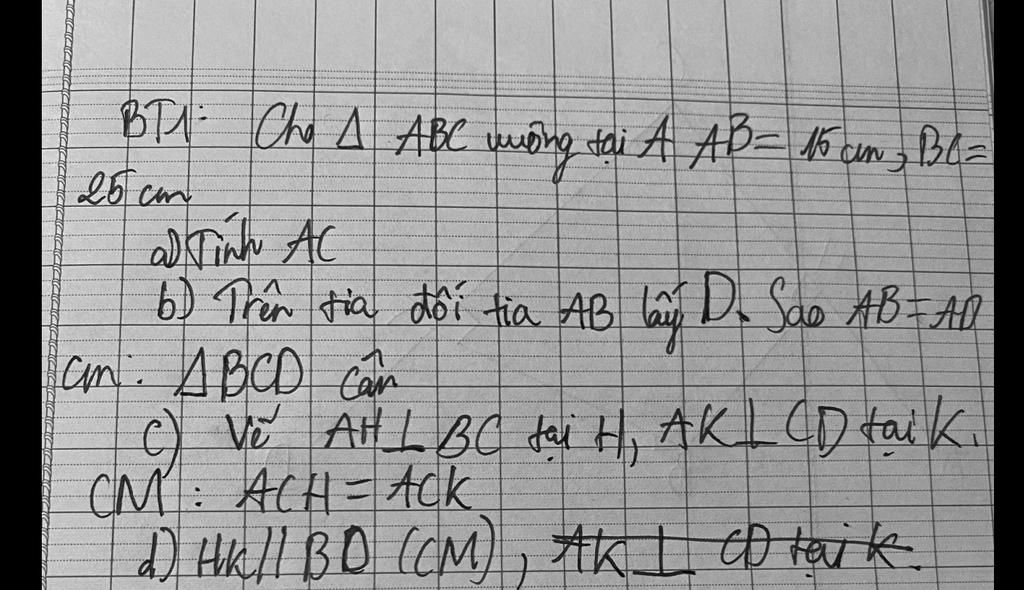 BT1: Cho Δ ABC vuông tại A AB = 15 cm, BC =
25 cm
a) Tính AC
b) Trên tia đối tia AB lấy D. Sao AB = AD
cm: ΔBCD cân
c) Vẽ AH ⊥ BC tại H, AK ⊥ CD tại K.
CM: ACH = ACK
d) HK // BD (CM), AK ⊥ CD tại K.